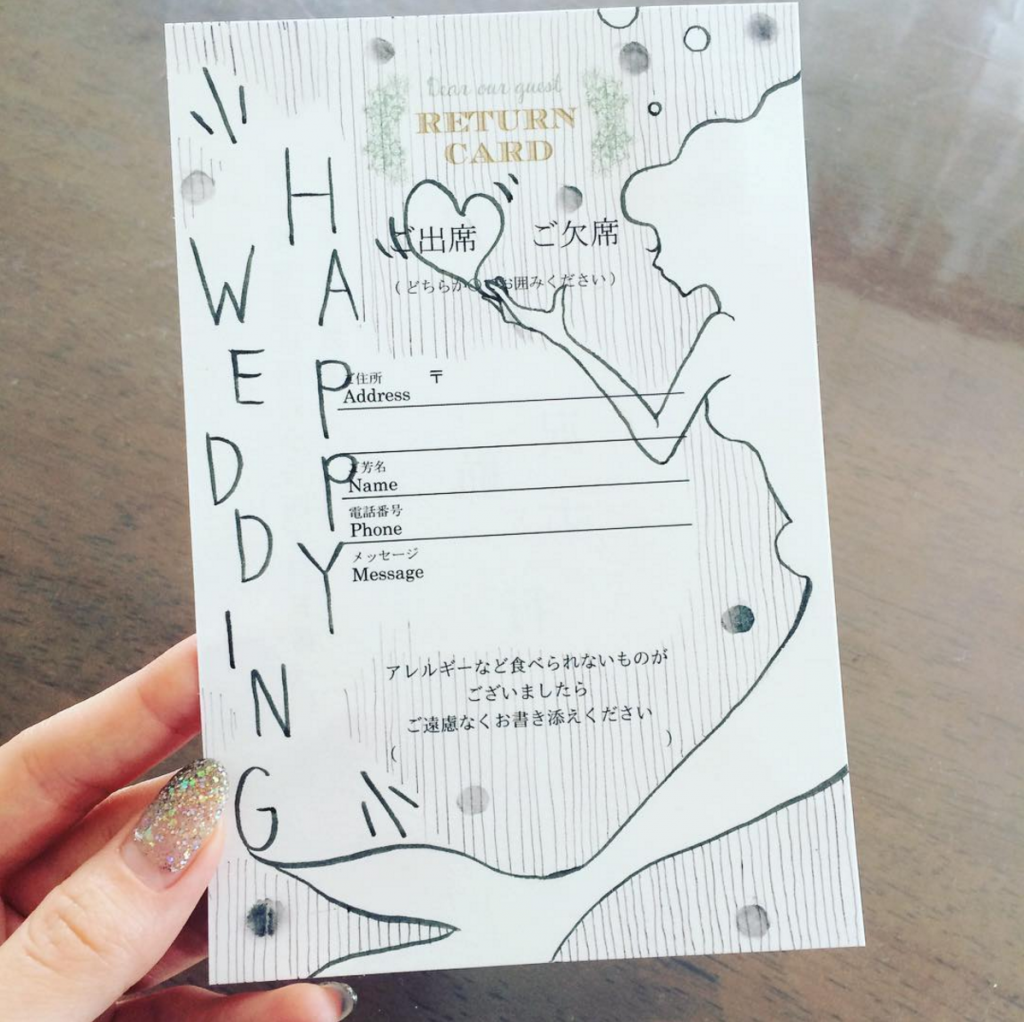 Dear our guest
RETURN
CARD
ご出席 ご欠席
(どちらか○でお囲みください)
ご住所 〒
Address
ご芳名
Name
電話番号
Phone
メッセージ
Message
アレルギーなど食べられないものが
ございましたら
ご遠慮なくお書き添えください
( )
HAPPY
WEDDING